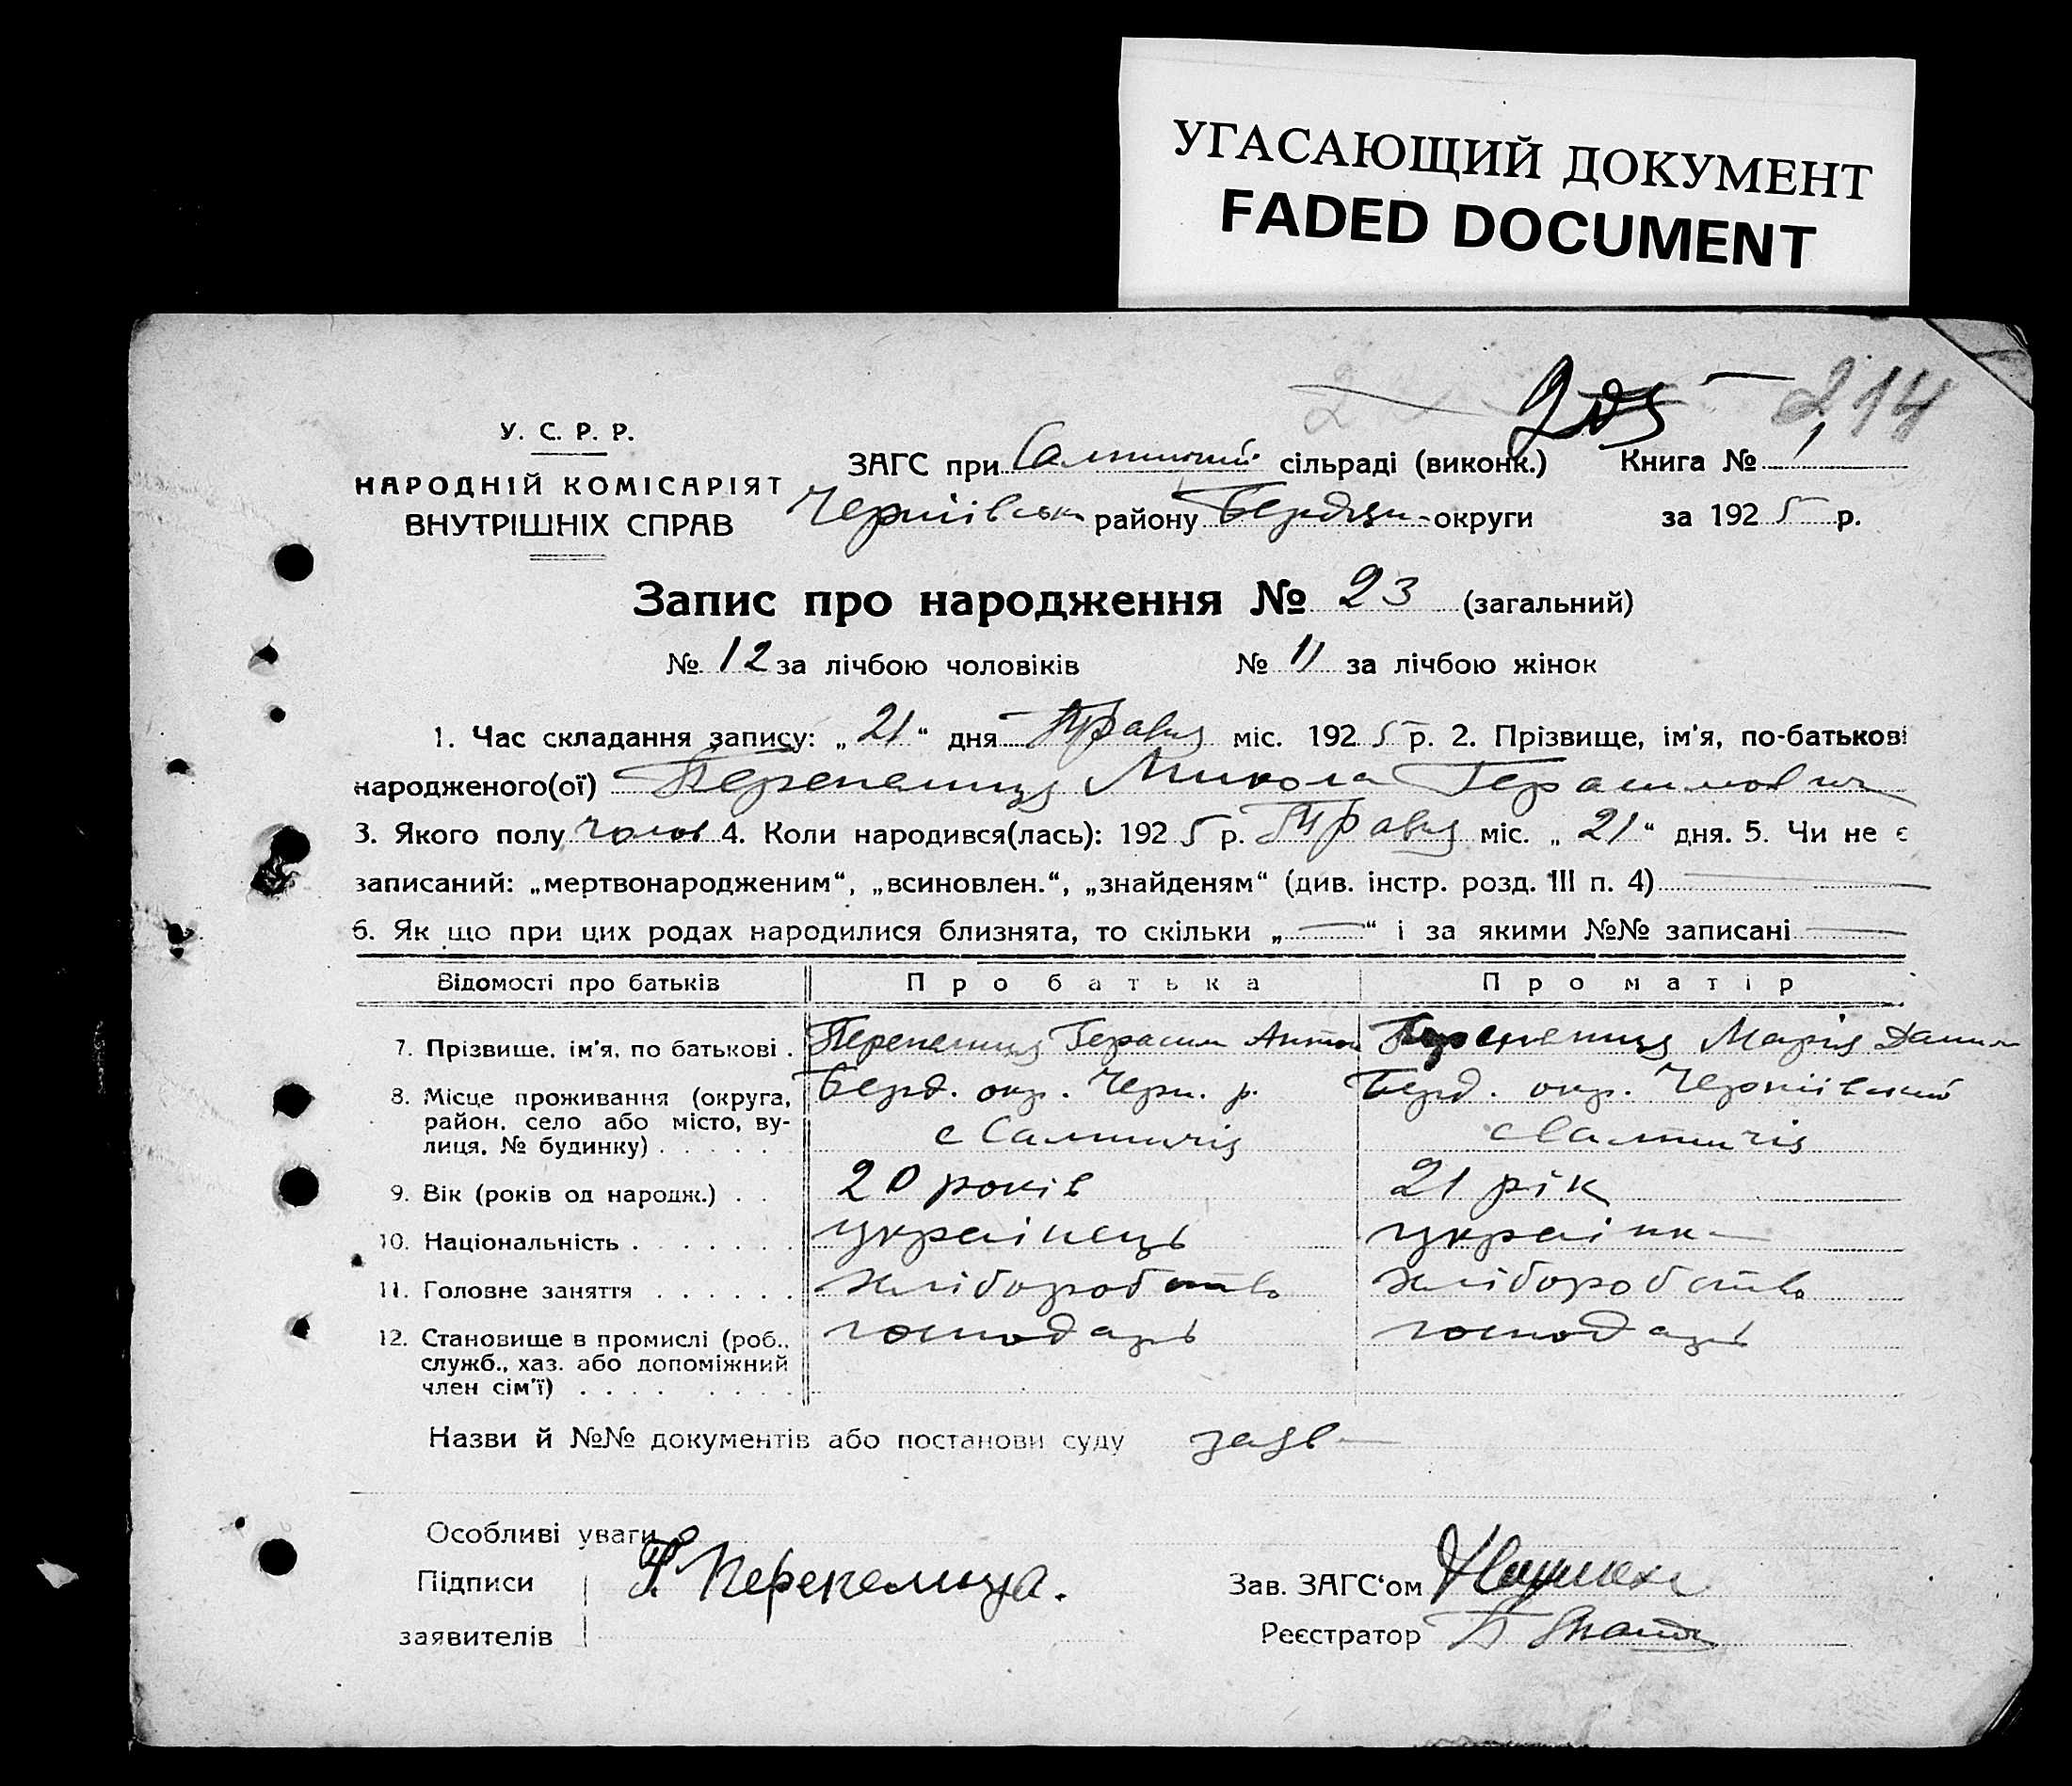 УГАСАЮЩИЙ ДОКУМЕНТ
FADED DOCUMENT
214
У. С. Р. Р.
НАРОДНІЙ КОМІСАРІЯТ
ВНУТРІШНІХ СПРАВ
ЗАГС при сільраді (виконк.) Книга № 1
району округи за 1925 р.
Запис про народження № 23 (загальний)
№ 12 за лічбою чоловіків № 11 за лічбою жінок
1. Час складання запису: „21“ дня Травня міс. 1925 р. 2. Прізвище, ім'я, по-батькові
народженого(ої) Перепелиця Микола Герасимович
3. Якого полу чолов 4. Коли народився(лась): 1925 р. Травня міс. „21“ дня. 5. Чи не є
записаний: „мертвонародженим“, „всиновлен.“, „знайденям“ (див. інстр. розд. III п. 4)
6. Як що при цих родах народилися близнята, то скільки „—“ і за якими №№ записані —
Відомості про батьків Про батька Про матір
7. Прізвище, ім'я, по батькові . Перепелиця Герасим Антон Перепелиця Марія Данил
8. Місце проживання (округа, район, село або місто, ву-
лиця, № будинку) . . . . . Берд. окр. Черн. р. Берд. окр.
с с
9. Вік (років од народж.) . . 20 років 21 рік
10. Національність . . . . . . українець українк
11. Головне заняття . . . . . . хліборобство хліборобство
12. Становище в промислі (роб., служб., хаз. або допоміжний
член сім'ї) . . . . . . . . господарь господарь
Назви й №№ документів або постанови суду заяв
Особливі уваги
Підписи Перепелица. Зав. ЗАГС‘ом
заявителів Реєстратор